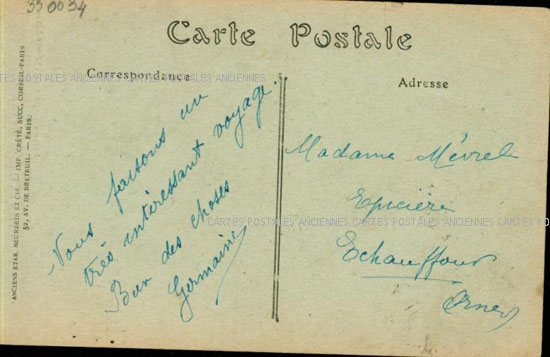 350034
Carte Postale
Correspondance
Adresse
CARTES POSTALES ANCIENNES CARTES POSTALES ANCIENNES
Nous faisons un
très intéressant voyage.
Bien des choses
Germaine
Madame Mévrel
Epicière
Echauffour
Orne
CARTES POSTALES ANCIENNES CARTES POSTALES ANCIENNES
ANCIENS ETAB. NEURDEIN ET CIE. — IMP. CRÉTÉ, SUCC, CORBEIL-PARIS
52, AV. DE BRETEUIL. — PARIS.